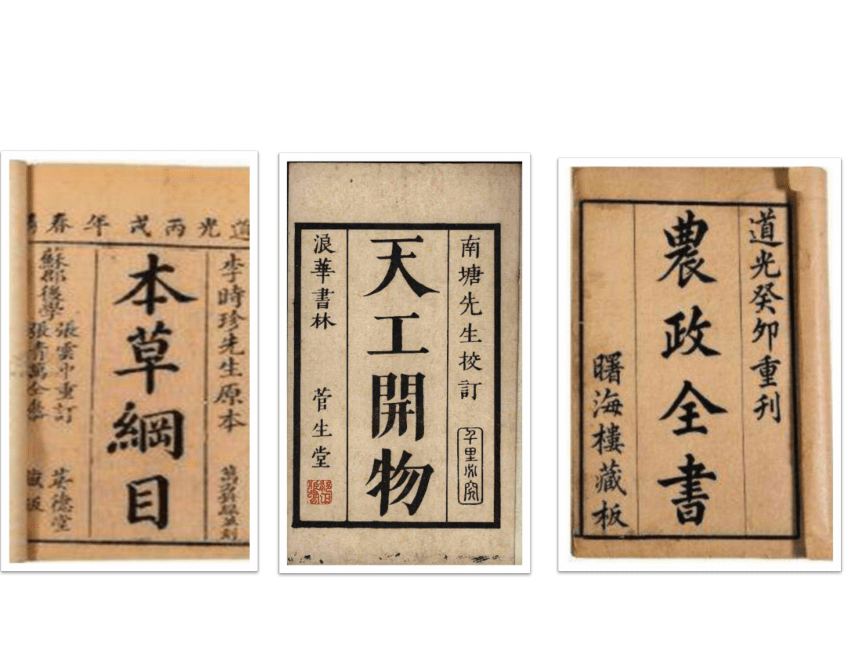 道光丙戌年春
李時珍先生原本
本草綱目
蘇郡後學
張雲中重訂
張青萬仝參
英德堂
藏板
南塘先生校訂
千里必究
天工開物
浪華書林 菅生堂
道光癸卯重刊
農政全書
曙海樓藏板